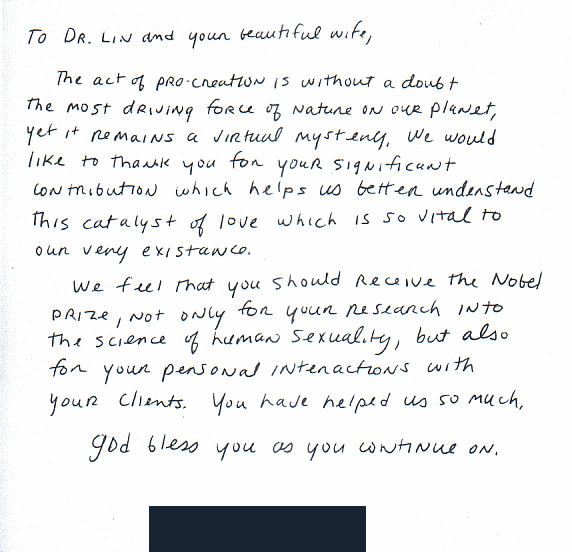 To DR. LIN and your beautiful wife,
The act of pro-creation is without a doubt
the most driving force of nature on our planet,
yet it remains a virtual mystery. We would
like to thank you for your significant
contribution which helps us better understand
this catalyst of love which is so vital to
our very existance.
We feel that you should receive the Nobel
prize, not only for your research into
the science of human sexuality, but also
for your personal interactions with
your clients. You have helped us so much,
god bless you as you continue on.